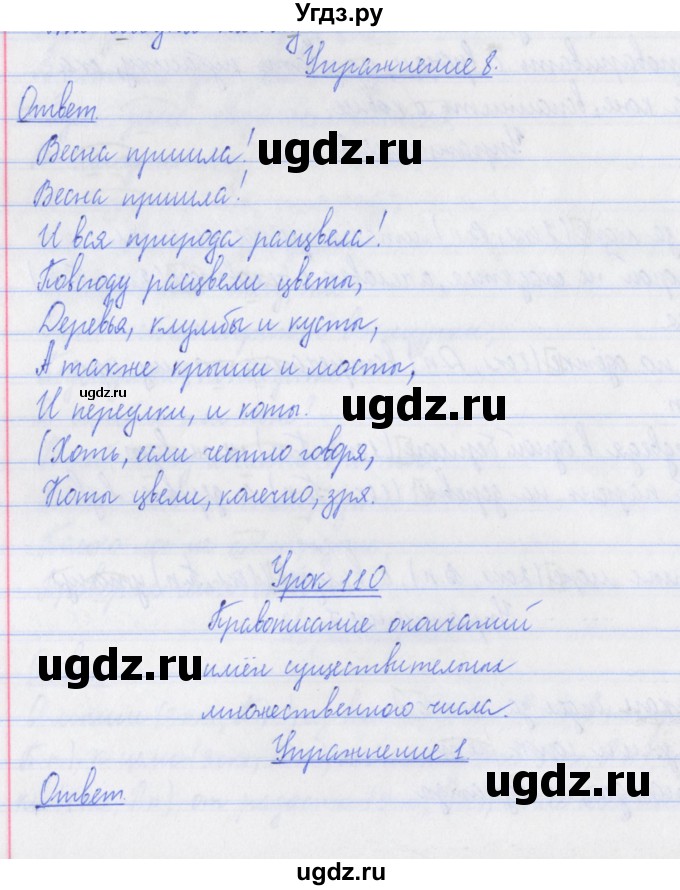 Угдз.ру
Упражнение 8.
Ответ.
Весна пришла!
ugdz.ru
Весна пришла!
И вся природа расцвела!
Повсюду расцвели цветы,
Деревья, клумбы и кусты,
А также крыши и мосты,
ugdz.ru
И переулки, и коты.
ugdz.ru
(Хоть, если честно говоря,
Коты цвели, конечно, зря.
Урок 110
Правописание окончаний
ugdz.ru
имён существительных
множественного числа.
Упражнение 1
ugdz.ru
Ответ.
ugdz.ru